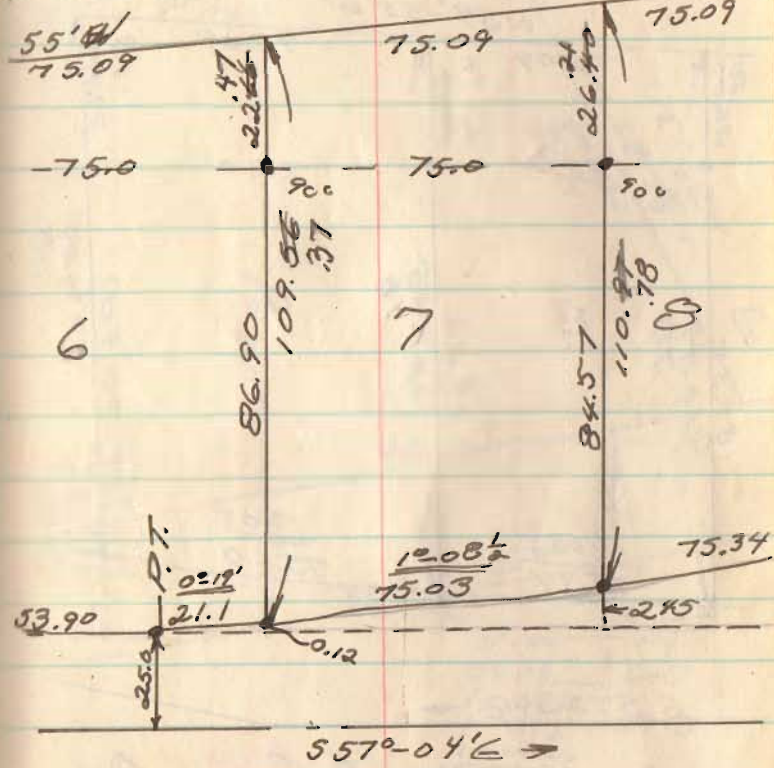 55' W
75.09
75.09
75.09
.47
22.46
.21
26.40
-75.0
75.0
90°
90°
109.56
.37
110.97
.78
86.90
84.57
6
7
8
P.T.
0°-19'
21.1
1°-08 1/2
75.03
75.34
53.90
0.12
2.45
25.0
S57°-04'E →